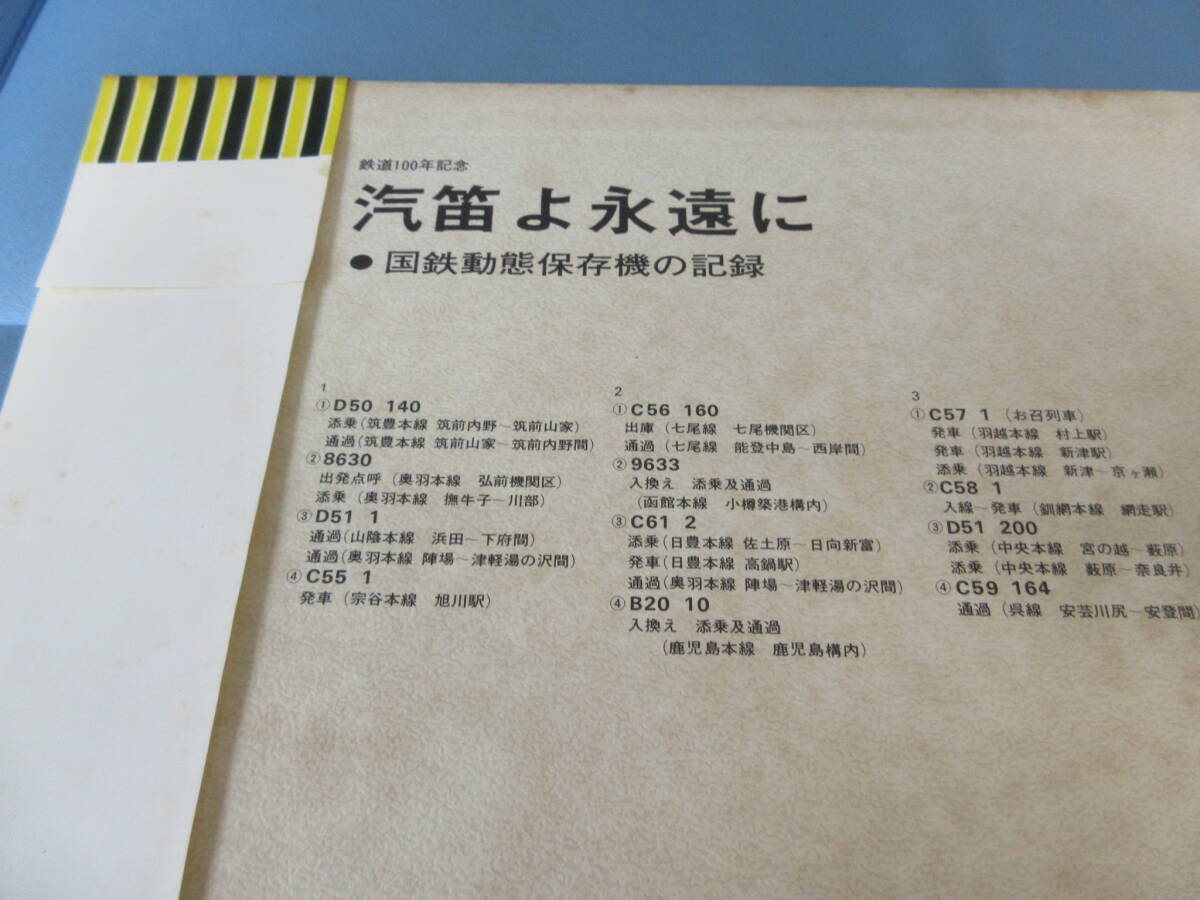 鉄道100年記念
汽笛よ永遠に
●国鉄動態保存機の記録
1
①D50 140
添乗(筑豊本線 筑前内野~筑前山家)
通過(筑豊本線 筑前山家~筑前内野間)
②8630
出発点呼(奥羽本線 弘前機関区)
添乗(奥羽本線 撫牛子~川部)
③D51 1
通過(山陰本線 浜田~下府間)
通過(奥羽本線 陣場~津軽湯の沢間)
④C55 1
発車(宗谷本線 旭川駅)
2
①C56 160
出庫(七尾線 七尾機関区)
通過(七尾線 能登中島~西岸間)
②9633
入換え 添乗及通過
(函館本線 小樽築港構内)
③C61 2
添乗(日豊本線 佐土原~日向新富)
発車(日豊本線 高鍋駅)
通過(奥羽本線 陣場~津軽湯の沢間)
④B20 10
入換え 添乗及通過
(鹿児島本線 鹿児島構内)
3
①C57 1(お召列車)
発車(羽越本線 村上駅)
発車(羽越本線 新津駅)
添乗(羽越本線 新津~京ヶ瀬)
②C58 1
入線~発車(釧網本線 網走駅)
③D51 200
添乗(中央本線 宮の越~藪原)
添乗(中央本線 藪原~奈良井)
④C59 164
通過(呉線 安芸川尻~安登間)